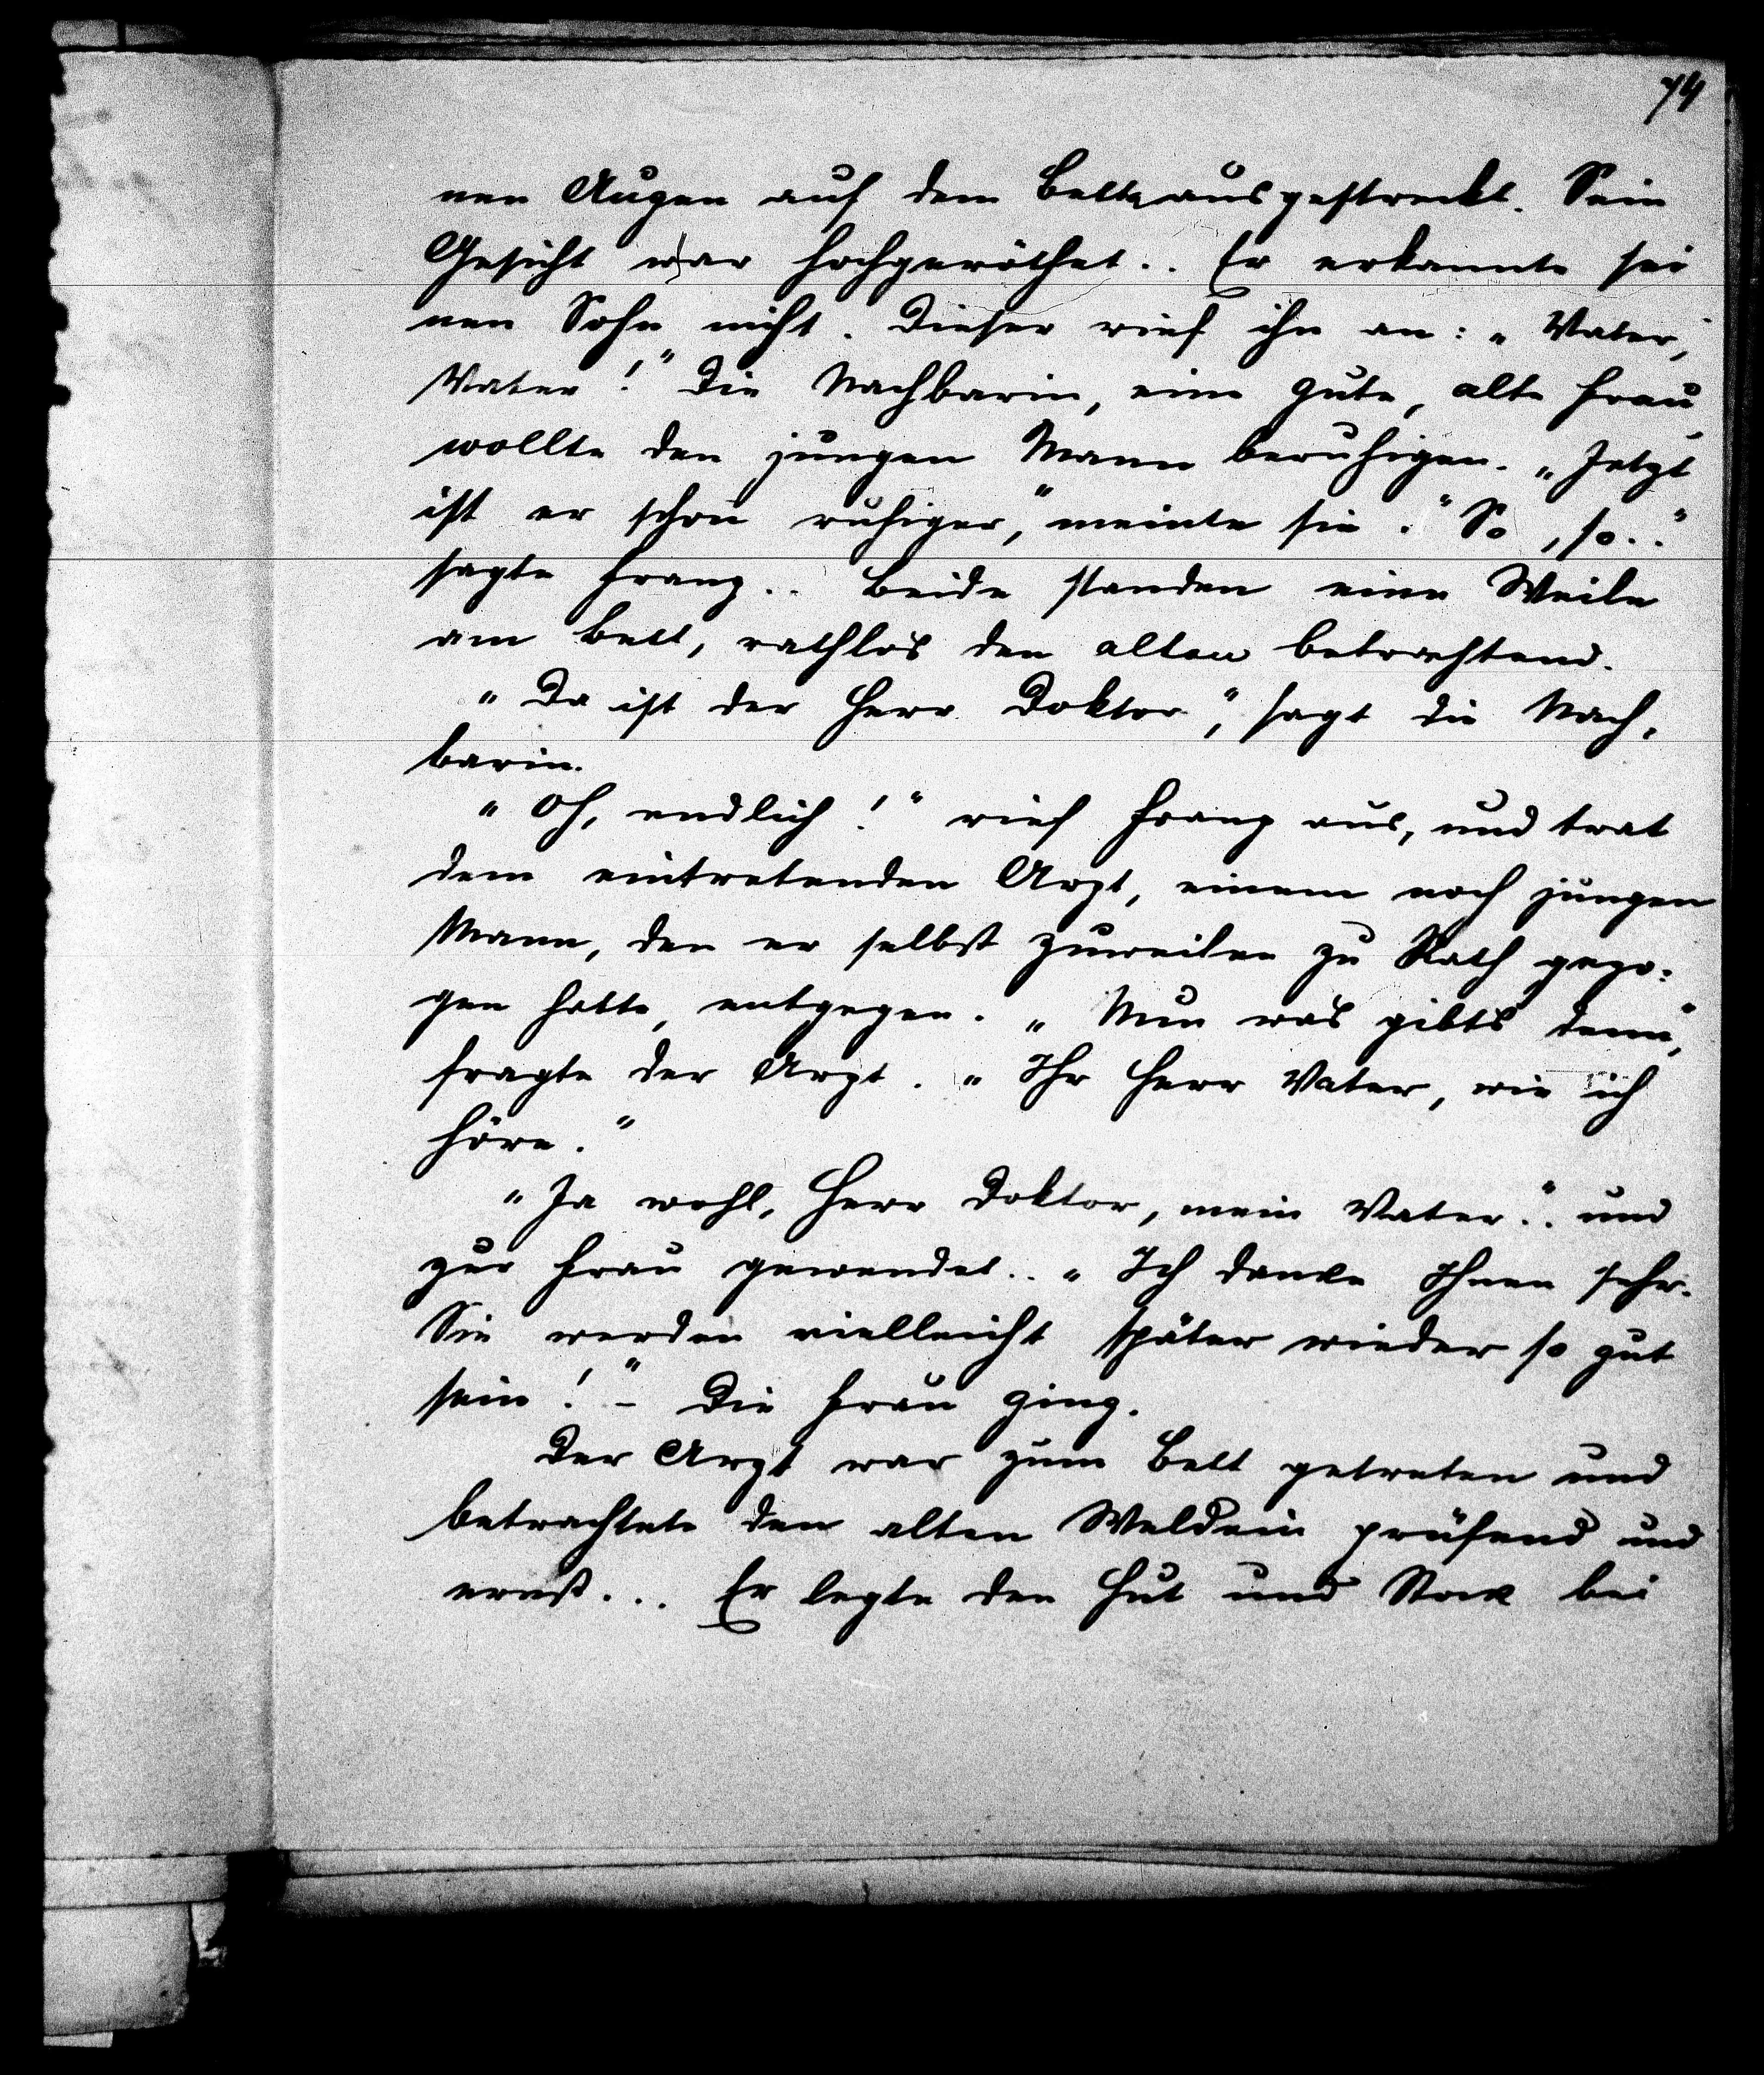 74
nen Augen auf dem Bette ausgestreckt. Sein
Gesicht war hochgeröthet.. Er erkannte sei
nen Sohn nicht. Dieser rief ihn an: „Vater,
Vater!" Die Nachbarin, eine gute, alte Frau,
wollte den jungen Mann beruhigen. „Jetzt
ist er schon ruhiger," meinte sie. "So, so.."
sagte Franz.. Beide standen eine Weile
am Bett, rathlos den alten betrachtend.
"Da ist der Herr Doktor", sagt die Nach-
barin.
"Oh, endlich!" rief Franz aus, und trat
dem eintretenden Arzt, einem noch jungen
Mann, den er selbst zuweilen zu Rath gezo-
gen hatte, entgegen. „Nun was gibts denn",
fragte der Arzt. „Ihr Herr Vater, wie ich
höre."
"Ja wohl, Herr Doktor, mein Vater.." und
zur Frau gewendet.. „Ich danke Ihnen sehr.
Sie werden vielleicht später wieder so gut
sein!" – Die Frau ging.
Der Arzt war zum Bett getreten und
betrachtete den alten Weldein prüfend und
ernst... Er legte den Hut und Stock bei